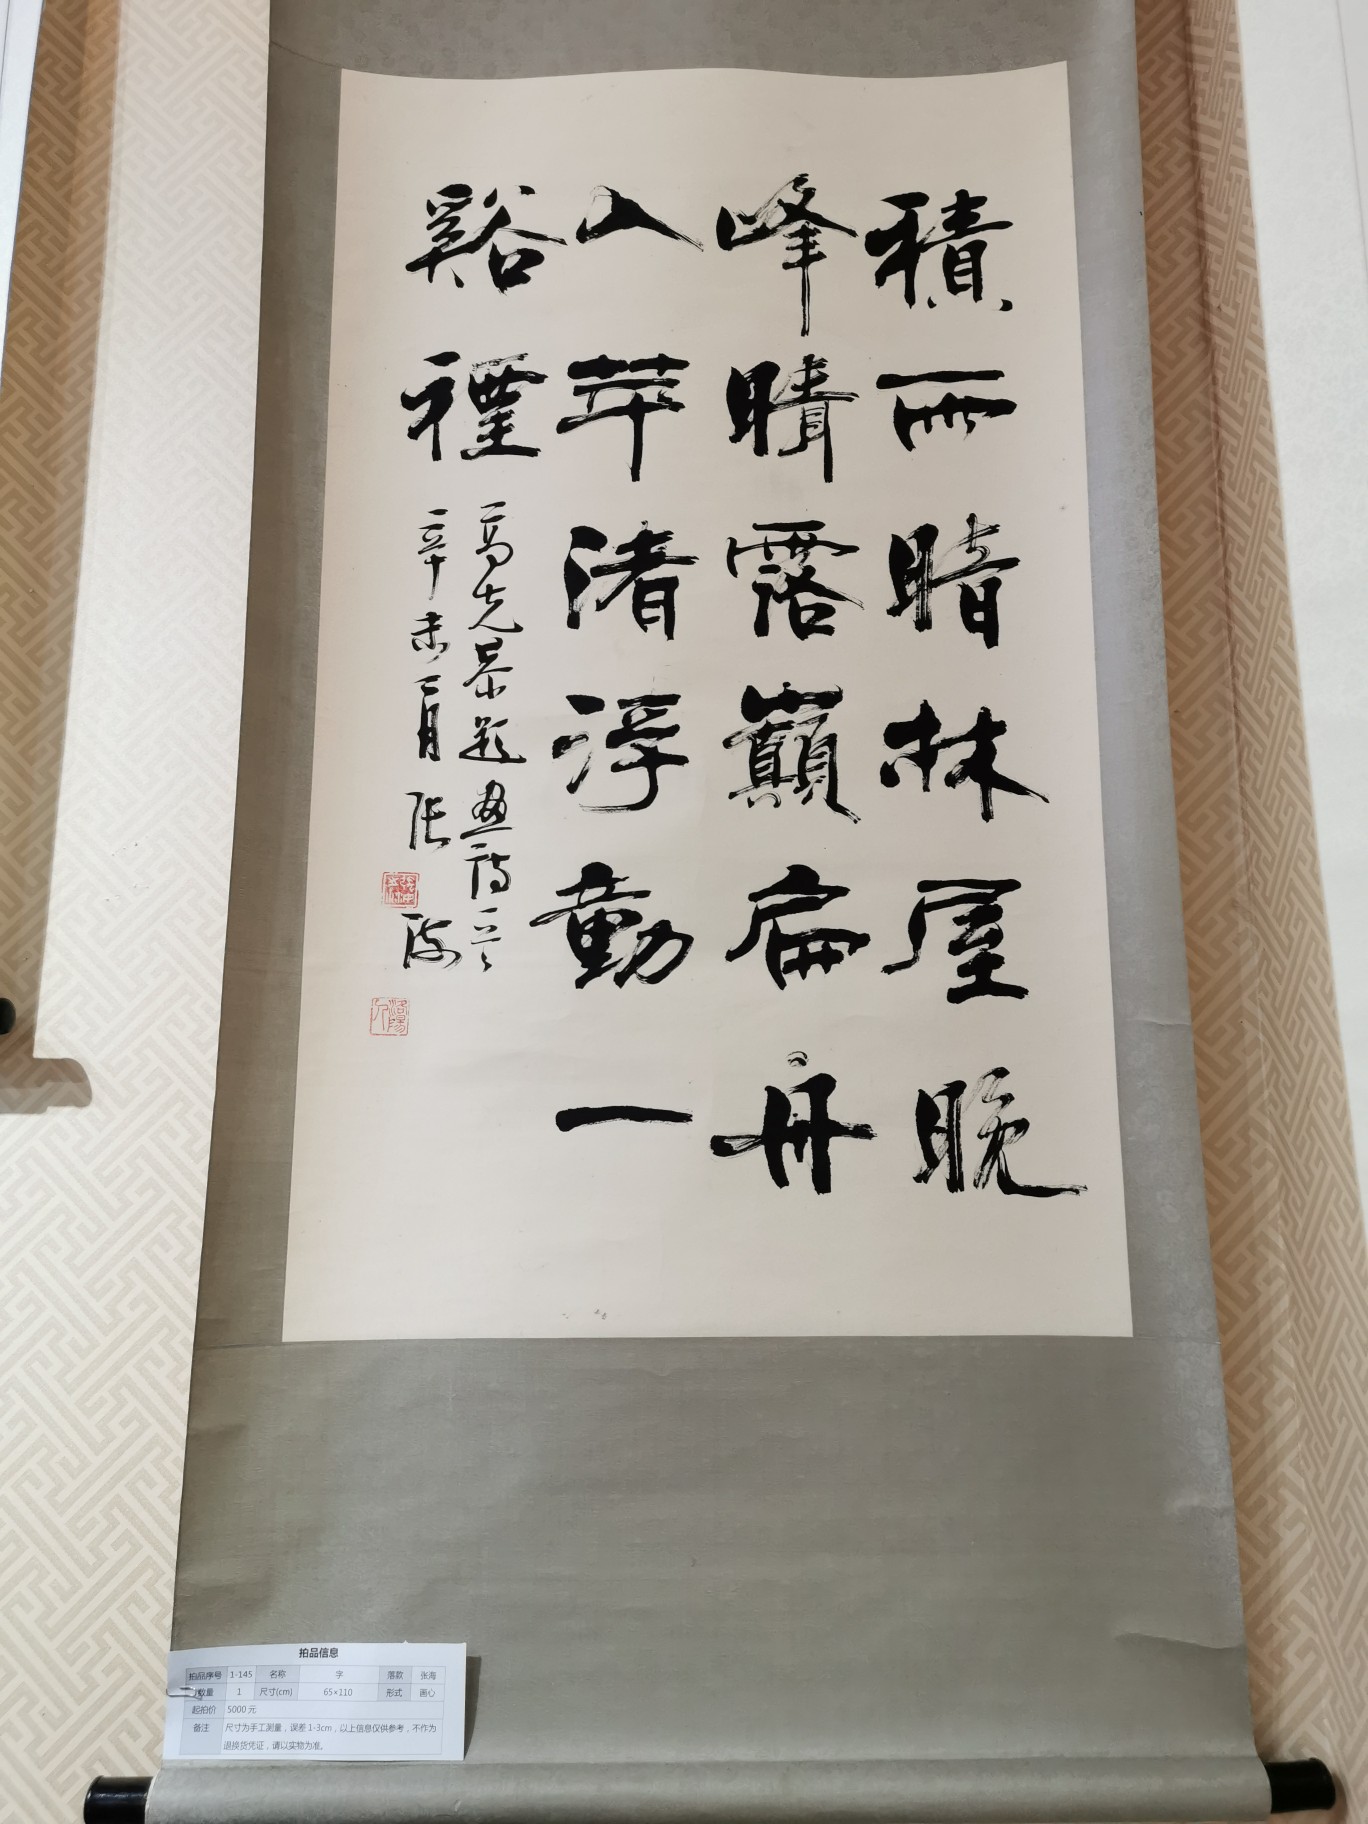 積雨暗林屋晚
峰晴露巔扁舟
入苹渚浮動一
谿禋
高克恭題畫詩一首
辛未月 張海
洛陽人
拍品信息
拍品序号 1-145 名称 字 落款 张海
数量 1 尺寸(cm) 65×110 形式 画心
起拍价 5000 元
备注 尺寸为手工测量，误差 1-3cm，以上信息仅供参考，不作为
退换货凭证，请以实物为准。